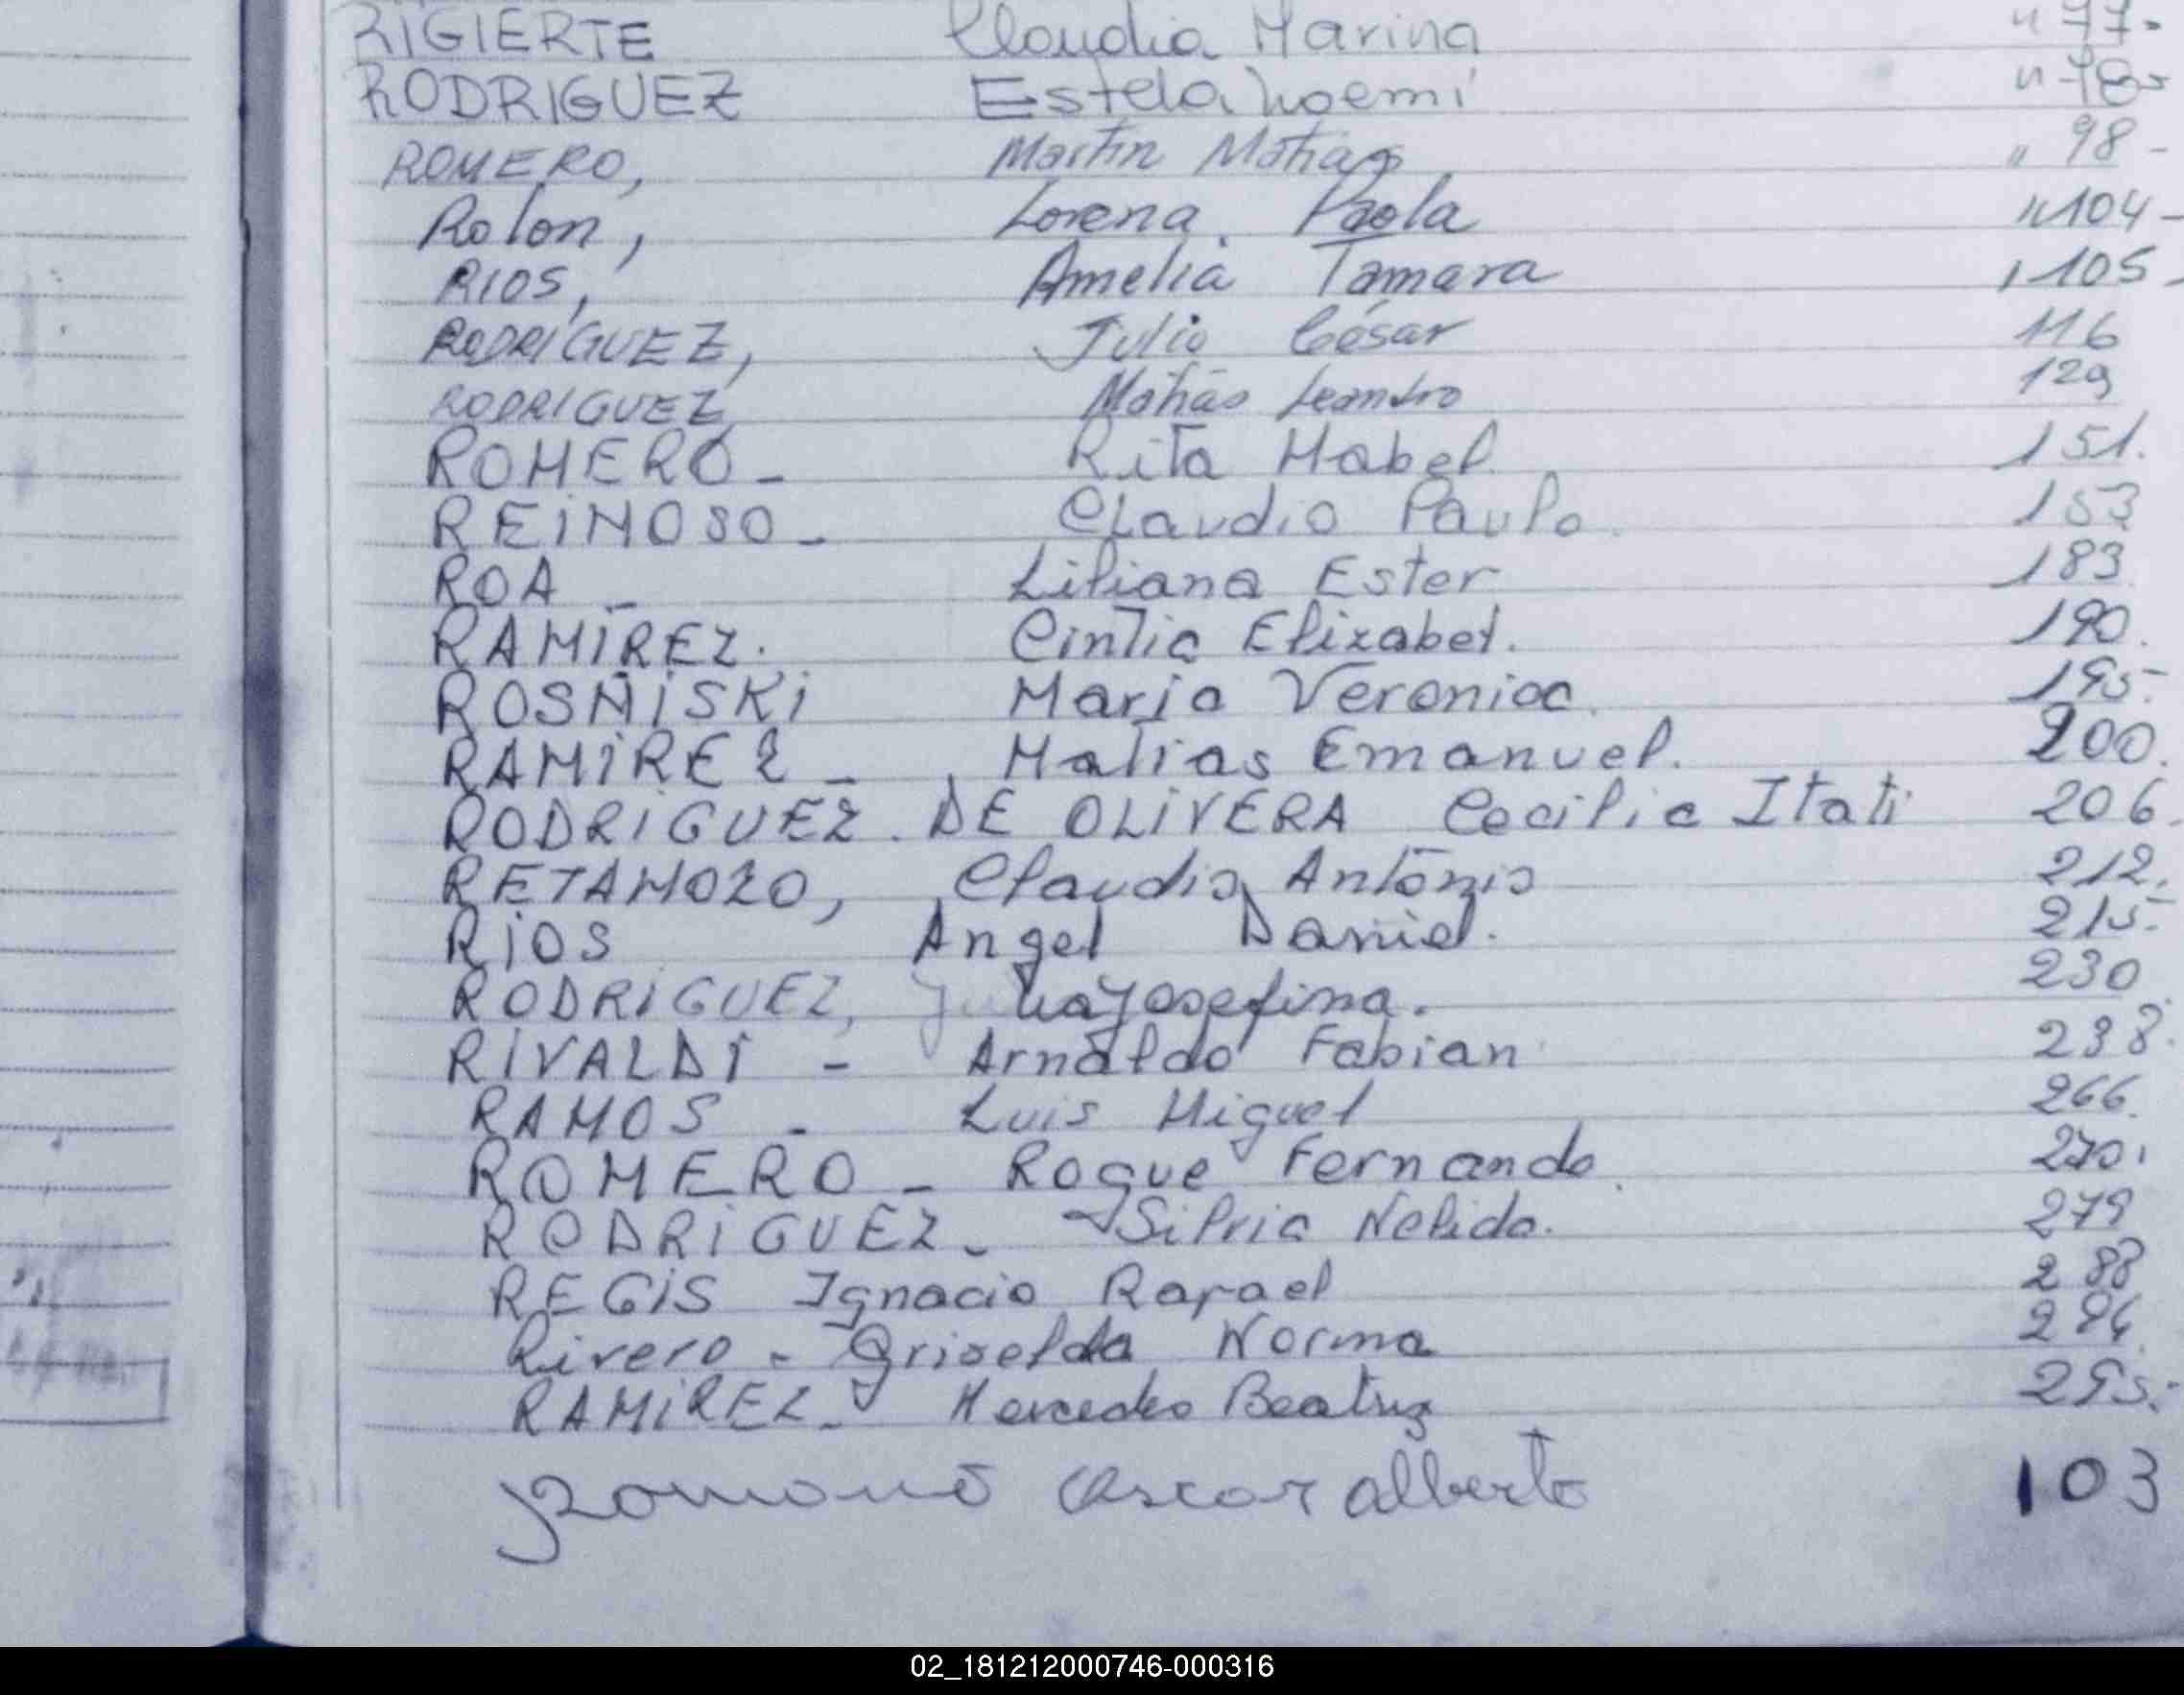 RIGIERTE Claudia Marina " 77-
RODRIGUEZ Estela Noemi " 78-
ROMERO, Martin Matias " 98-
Rolon, Lorena Paola " 104-
RIOS, Amelia Tamara " 105-
RODRIGUEZ, Julio César 116
RODRIGUEZ Matias Leandro 129
ROMERO- Rita Mabel 151.
REINOSO- Claudio Paulo. 153
ROA - Liliana Ester 183
RAMIREZ. Cintia Elizabet. 190.
ROSÑISKI Maria Veronica. 195-
RAMIREZ - Matias Emanuel. 200.
RODRIGUEZ. DE OLIVERA Cecilia Itati 206.
RETAMOZO, Claudio Antonio 212.
RIOS Angel Daniel. 215-
RODRIGUEZ, Julia Josefina. 230
RIVALDI - Arnaldo Fabian 238.
RAMOS - Luis Miguel 266.
ROMERO - Roque Fernando. 270.
RODRIGUEZ - Silvia Nelida. 279
REGIS Ignacio Rafael 288
Rivero - Griselda Norma 294
RAMIREZ - Mercedes Beatriz 295.-
Oscar alberto 103
02_181212000746-000316